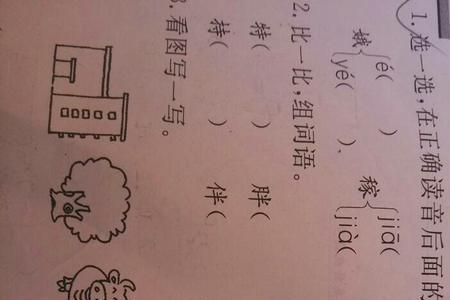 1. 选一选,在正确读音后面的
é(　　) jiā(
娥 稼
yé(　　), jià(
2. 比一比,组词语。
特(　　) 胖(
持(　　) 伴(
3. 看图写一写。